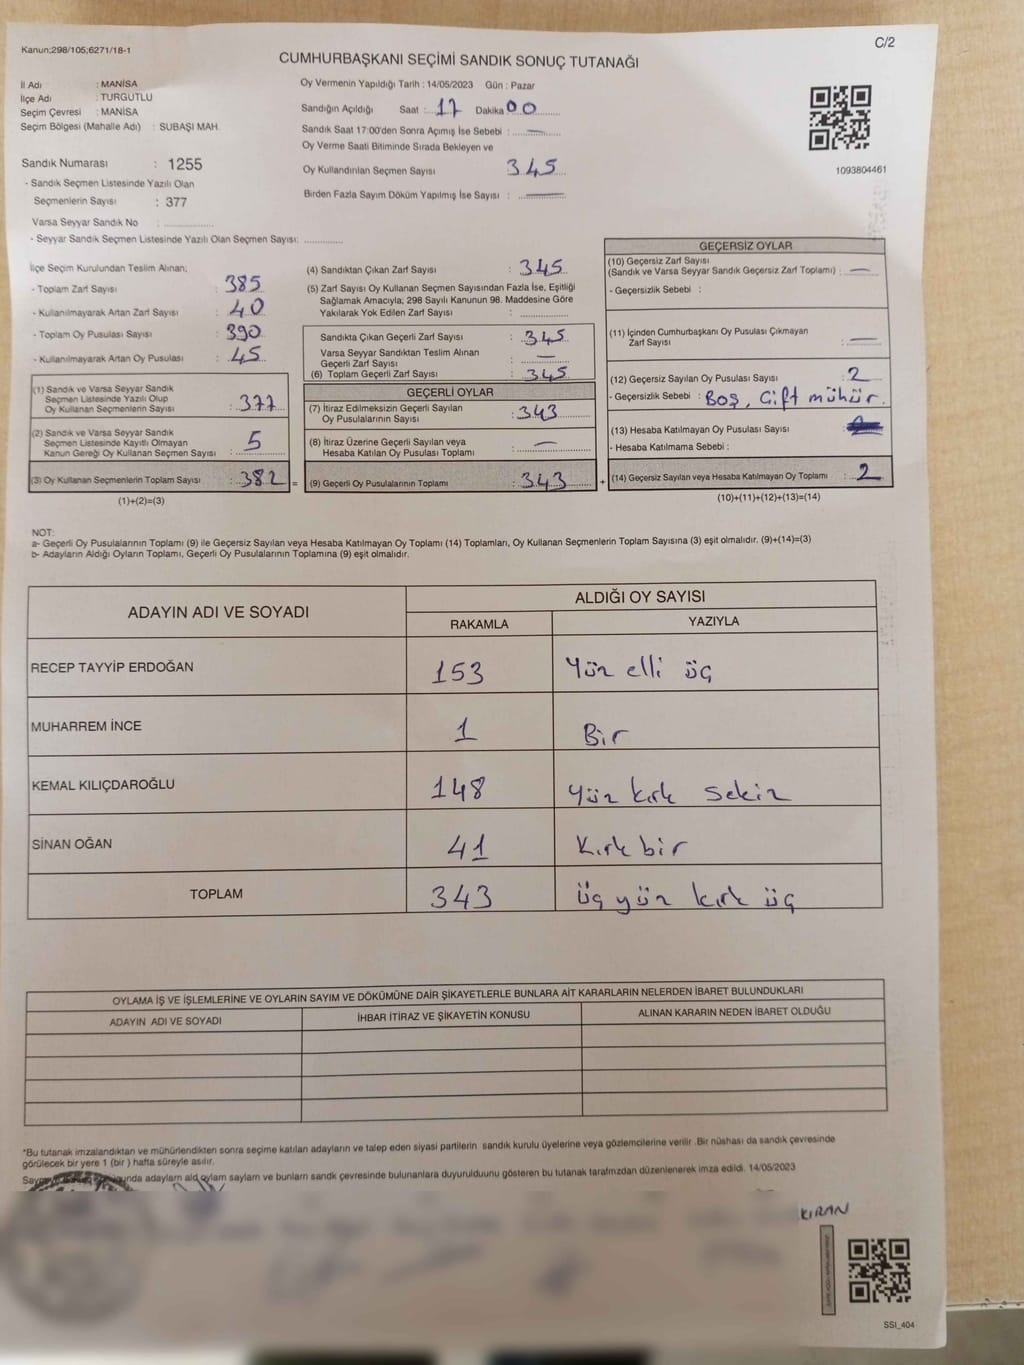 Kanun;298/105;6271/18-1
C/2
CUMHURBAŞKANI SEÇİMİ SANDIK SONUÇ TUTANAĞI
İl Adı : MANİSA
İlçe Adı : TURGUTLU
Seçim Çevresi : MANİSA
Seçim Bölgesi (Mahalle Adı) : SUBAŞI MAH.
Oy Vermenin Yapıldığı Tarih : 14/05/2023 Gün : Pazar
Sandığın Açıldığı Saat : 17 Dakika 00
Sandık Saat 17:00'den Sonra Açımış İse Sebebi : —
Oy Verme Saati Bitiminde Sırada Bekleyen ve
Oy Kullandırılan Seçmen Sayısı 345
Birden Fazla Sayım Döküm Yapılmış İse Sayısı : —
1093804461
Sandık Numarası : 1255
- Sandık Seçmen Listesinde Yazılı Olan
Seçmenlerin Sayısı : 377
Varsa Seyyar Sandık No :
- Seyyar Sandık Seçmen Listesinde Yazılı Olan Seçmen Sayısı:
İlçe Seçim Kurulundan Teslim Alınan;
- Toplam Zarf Sayısı : 385
- Kullanılmayarak Artan Zarf Sayısı : 40
- Toplam Oy Pusulası Sayısı : 390
- Kullanılmayarak Artan Oy Pusulası : 45
(1) Sandık ve Varsa Seyyar Sandık
Seçmen Listesinde Yazılı Olup
Oy Kullanan Seçmenlerin Sayısı : 377
(2) Sandık ve Varsa Seyyar Sandık
Seçmen Listesinde Kayıtlı Olmayan
Kanun Gereği Oy Kullanan Seçmen Sayısı : 5
(3) Oy Kullanan Seçmenlerin Toplam Sayısı : 382 =
(1)+(2)=(3)
(4) Sandıktan Çıkan Zarf Sayısı : 345
(5) Zarf Sayısı Oy Kullanan Seçmen Sayısından Fazla İse, Eşitliği
Sağlamak Amacıyla; 298 Sayılı Kanunun 98. Maddesine Göre
Yakılarak Yok Edilen Zarf Sayısı :
Sandıkta Çıkan Geçerli Zarf Sayısı : 345
Varsa Seyyar Sandıktan Teslim Alınan
Geçerli Zarf Sayısı : —
(6) Toplam Geçerli Zarf Sayısı : 345
GEÇERLİ OYLAR
(7) İtiraz Edilmeksizin Geçerli Sayılan
Oy Pusulalarının Sayısı : 343
(8) İtiraz Üzerine Geçerli Sayılan veya
Hesaba Katılan Oy Pusulası Toplamı : —
(9) Geçerli Oy Pusulalarının Toplamı : 343 +
GEÇERSİZ OYLAR
(10) Geçersiz Zarf Sayısı
(Sandık ve Varsa Seyyar Sandık Geçersiz Zarf Toplamı) : —
- Geçersizlik Sebebi :
(11) İçinden Cumhurbaşkanı Oy Pusulası Çıkmayan
Zarf Sayısı : —
(12) Geçersiz Sayılan Oy Pusulası Sayısı : 2
- Geçersizlik Sebebi : Boş, Çift mühür.
(13) Hesaba Katılmayan Oy Pusulası Sayısı :
- Hesaba Katılmama Sebebi :
(14) Geçersiz Sayılan veya Hesaba Katılmayan Oy Toplamı : 2
(10)+(11)+(12)+(13)=(14)
NOT:
a- Geçerli Oy Pusulalarının Toplamı (9) ile Geçersiz Sayılan veya Hesaba Katılmayan Oy Toplamı (14) Toplamları, Oy Kullanan Seçmenlerin Toplam Sayısına (3) eşit olmalıdır. (9)+(14)=(3)
b- Adayların Aldığı Oyların Toplamı, Geçerli Oy Pusulalarının Toplamına (9) eşit olmalıdır.
ADAYIN ADI VE SOYADI
ALDIĞI OY SAYISI
RAKAMLA YAZIYLA
RECEP TAYYİP ERDOĞAN 153 Yüz elli üç
MUHARREM İNCE 1 Bir
KEMAL KILIÇDAROĞLU 148 Yüz kırk sekiz
SİNAN OĞAN 41 Kırk bir
TOPLAM 343 üç yüz kırk üç
OYLAMA İŞ VE İŞLEMLERİNE VE OYLARIN SAYIM VE DÖKÜMÜNE DAİR ŞİKAYETLERLE BUNLARA AİT KARARLARIN NELERDEN İBARET BULUNDUKLARI
ADAYIN ADI VE SOYADI İHBAR İTİRAZ VE ŞİKAYETİN KONUSU ALINAN KARARIN NEDEN İBARET OLDUĞU
*Bu tutanak imzalandıktan ve mühürlendikten sonra seçime katılan adayların ve talep eden siyasi partilerin sandık kurulu üyelerine veya gözlemcilerine verilir .Bir nüshası da sandık çevresinde
görülecek bir yere 1 (bir ) hafta süreyle asılır.
adayların ald oylam sayların ve bunların sandık çevresinde bulunanlara duyurulduunu gösteren bu tutanak tarafmzdan düzenlenerek imza edildi. 14/05/2023
KIRAN
SSI_404